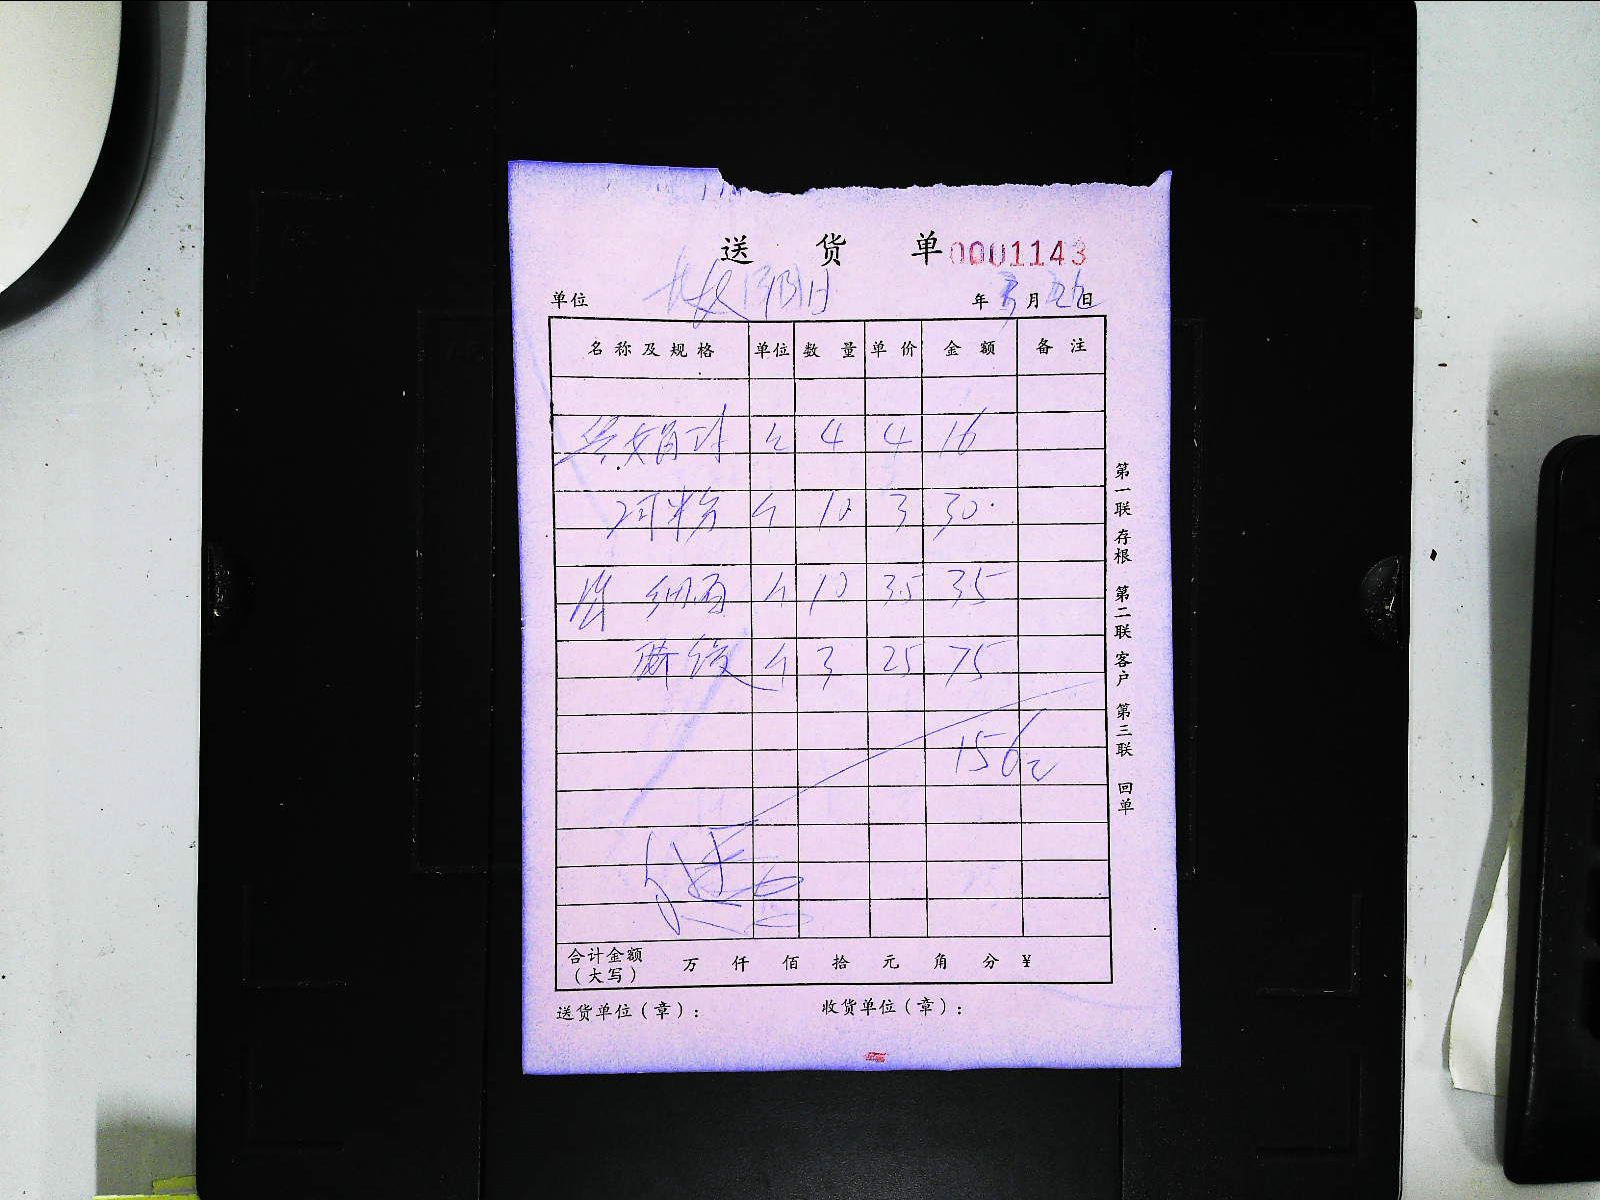 送 货 单 0001143
单位 年 月 日
名称及规格 单位 数量 单价 金额 备注
4 4 16
河粉 斤 10 3 30
细面 斤 10 3.5 35
斤 3 25 75
156
合计金额（大写） 万 仟 佰 拾 元 角 分 ¥
送货单位（章）： 收货单位（章）：
第一联 存根 第二联 客户 第三联 回单